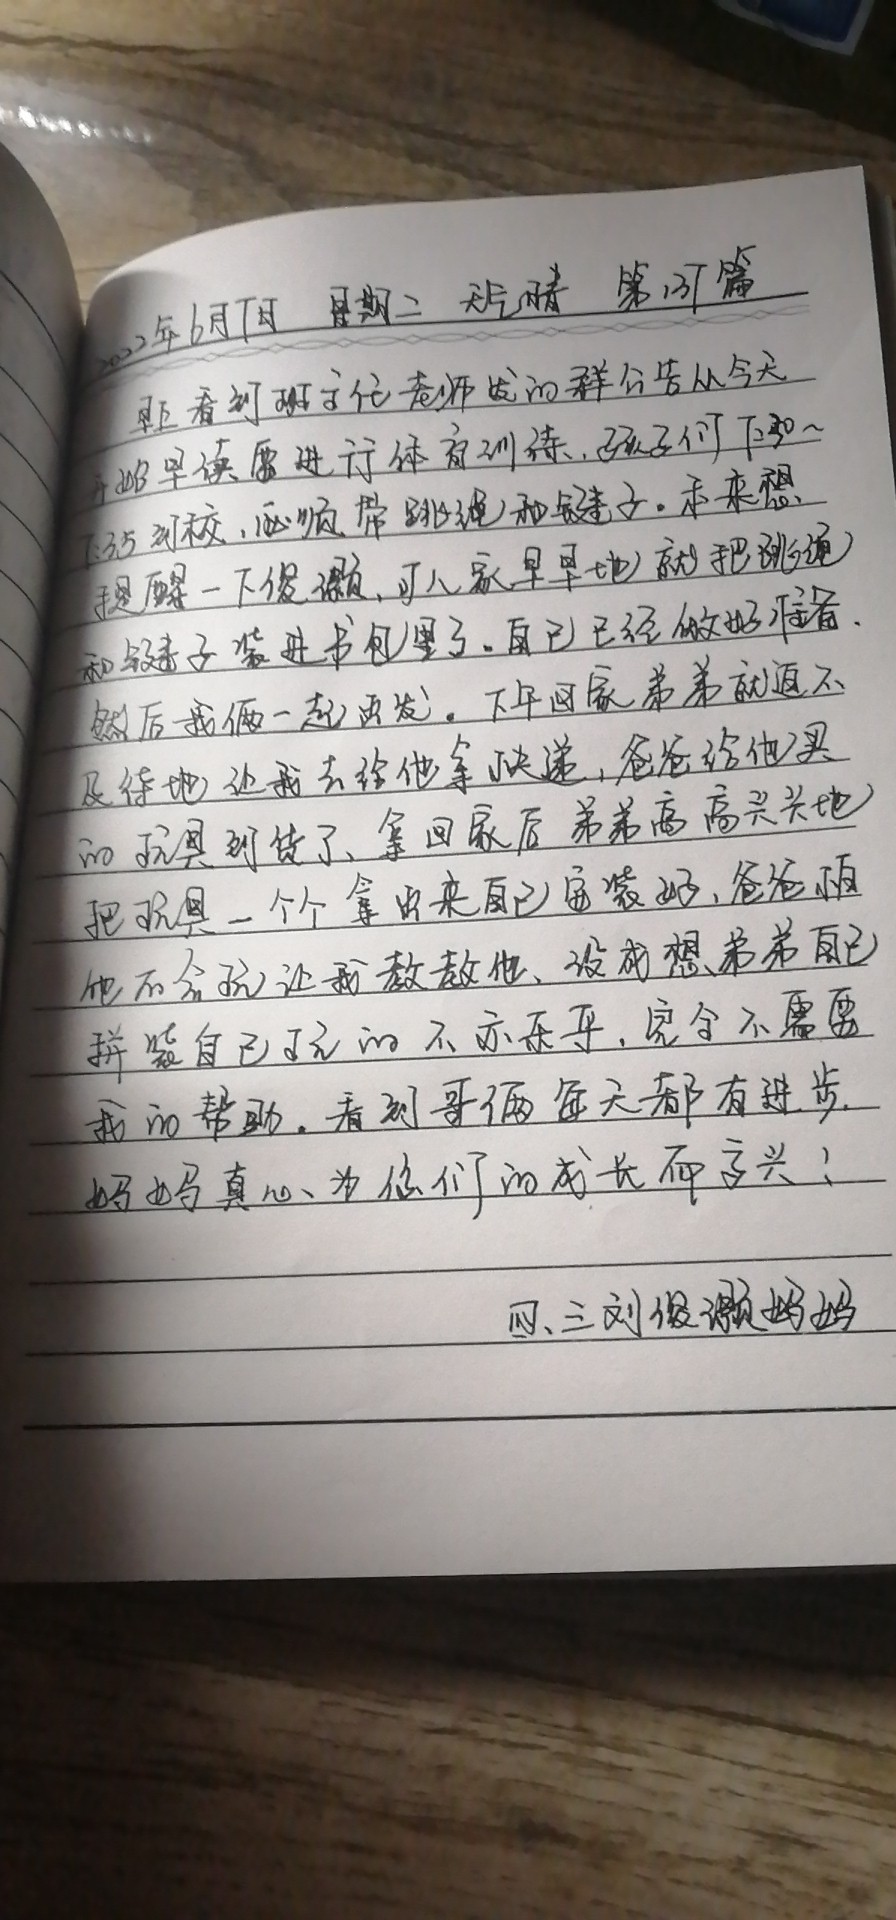 2022年6月7日 星期二 天气晴 第137篇
早上看到班主任老师发的群公告从今天
开始早读要进行体育训练,孩子们7:30~
7:35到校,必须带跳绳和毽子。本来想
提醒一下俊灏,可人家早早地就把跳绳
和毽子装进书包里了。自己已经做好准备,
然后我俩一起出发。下午回家弟弟就迫不
及待地让我去给他拿快递,爸爸给他买
的玩具到货了、拿回家后弟弟高高兴兴地
把玩具一个个拿出来自己安装好,爸爸怕
他不会玩让我教教他、没成想、弟弟自己
拼装自己玩的不亦乐乎,完全不需要
我的帮助。看到哥俩每天都有进步,
妈妈真心、为你们的成长而高兴!
四、三刘俊灏妈妈